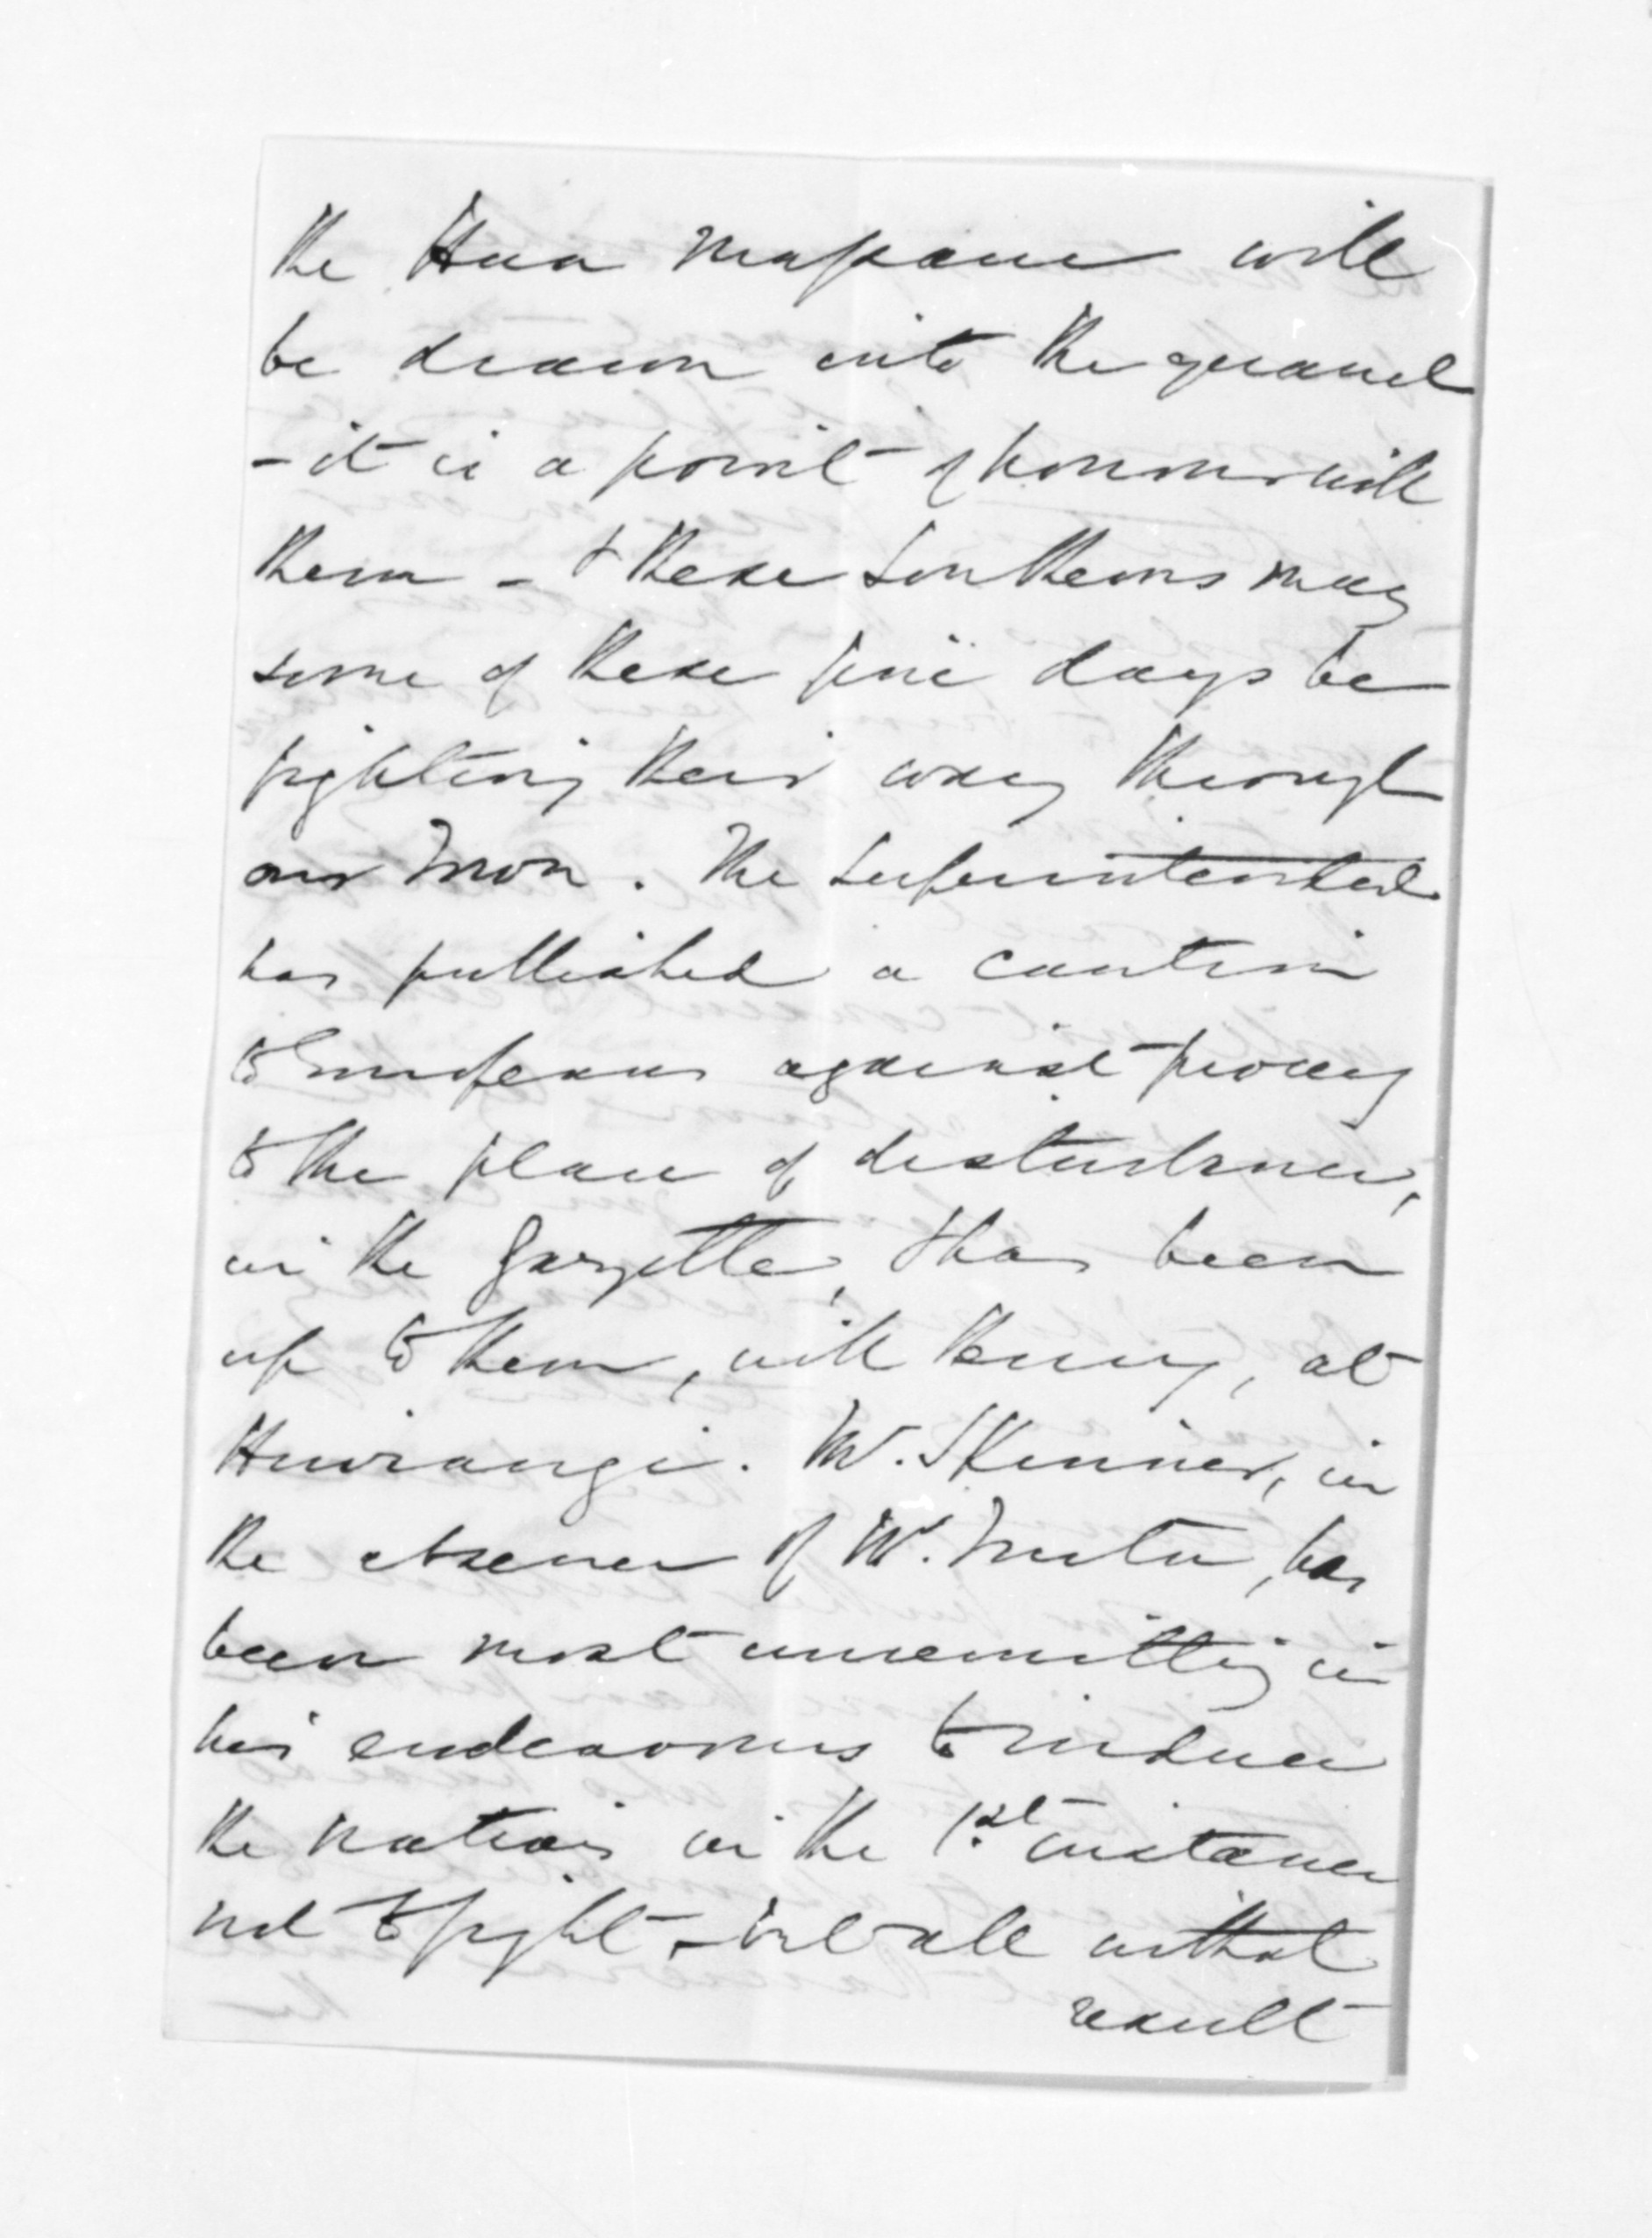 the Hua massacre will
be drawn into the quarrel
- it is a point of honour with
them - & these Southerns may
some of these fine days be
fighting their way through
our Town. The Superintendent
has published a caution
to Europeans against proceeg
to the place of disturbance,
in the Gazette, & has been
up to them, with Penny, at
Huirangi. Mr. Skinner, in
the absence of Mr. Turton, has
been most unremitting in
his endeavours to induce
the natives in the 1st. instance
not to fight, - but all without
result